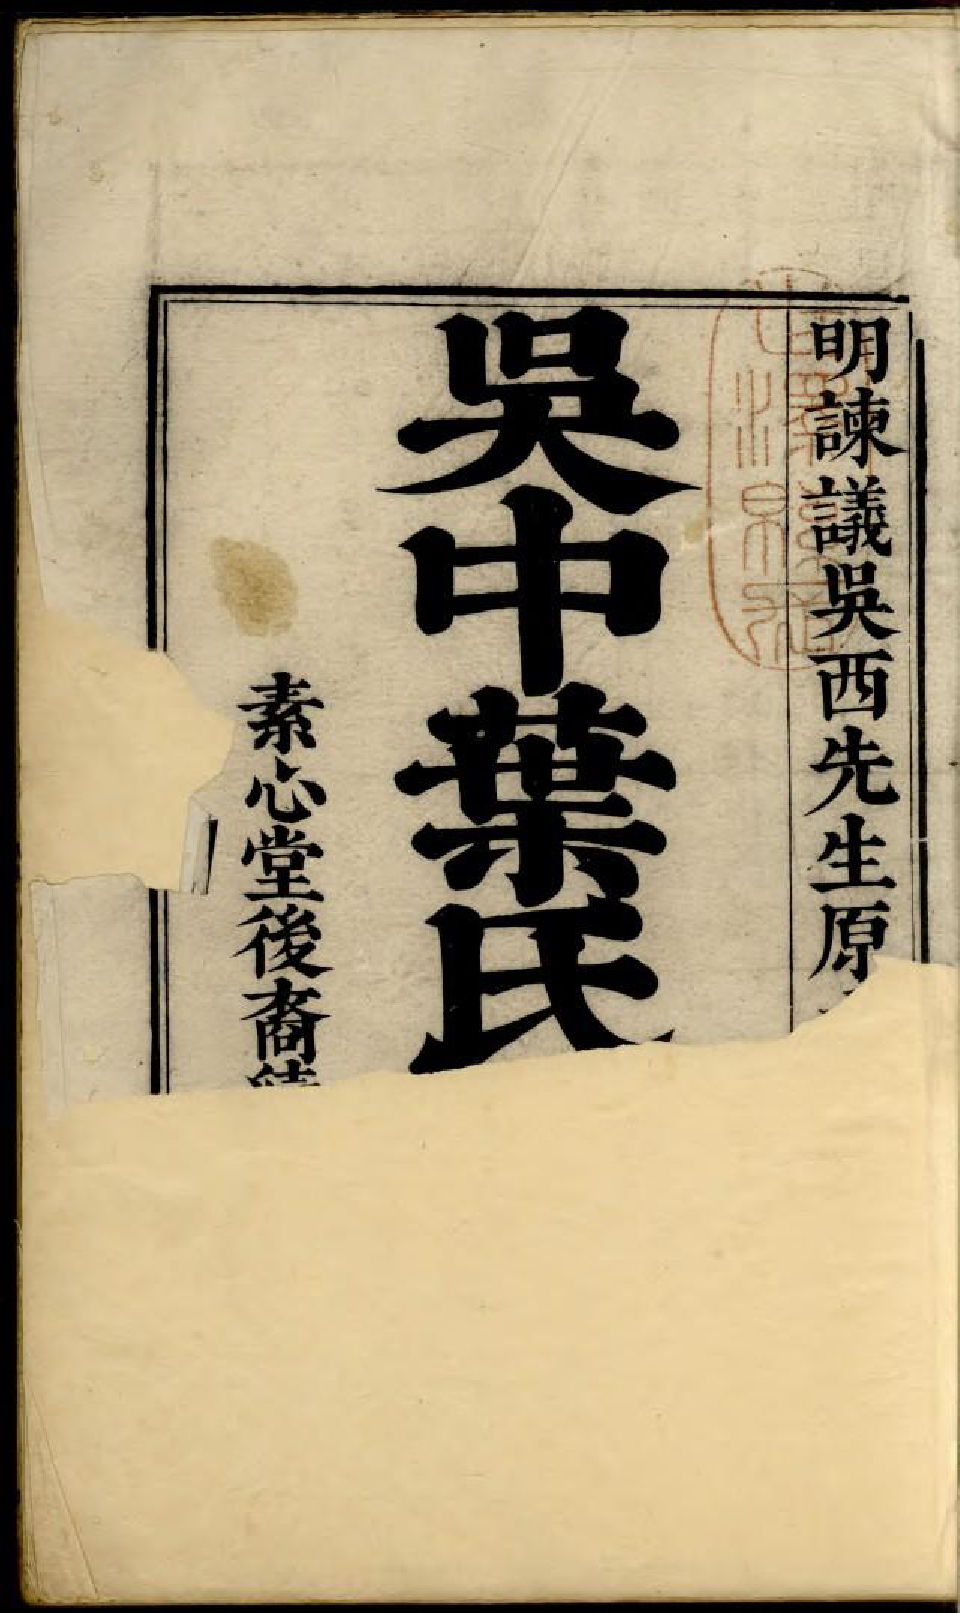 明諫議吳西先生原
吳中葉氏
素心堂後裔